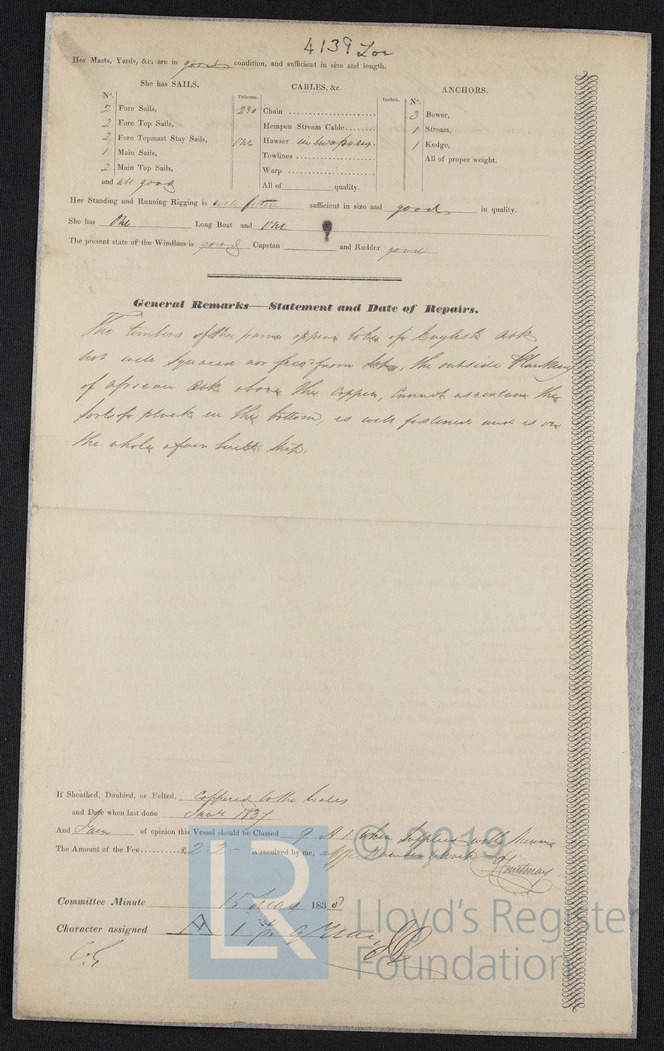 4139 Lon
Her Masts, Yards, &c. are in good condition, and sufficient in size and length.
She has SAILS.
CABLES, &c.
ANCHORS.
N°.
Fathoms.
Inches.
N°.
2 Fore Sails,
230 Chain
3 Bower,
2 Fore Top Sails,
Hempen Stream Cable
1 Stream,
2 Fore Topmast Stay Sails,
One Hawser
1 Kedge,
1 Main Sails,
Towlines
All of proper weight.
2 Main Top Sails,
Warp
and all good
All of quality.
Her Standing and Running Rigging is well fitted sufficient in size and good in quality.
She has One Long Boat and One
The present state of the Windlass is good Capstan and Rudder good
General Remarks—Statement and Date of Repairs.
The timbers of the frame appear to be of English Oak
not well squared nor free from sap, the outside Planking
of African Oak above the copper, Cannot ascertain the
sorts of plank in the bottom, is well fastened and is on
the whole a fair built Ship.
If Sheathed, Doubled, or Felted, Coppered to the Wales
and Date when last done June 1837
And I am of opinion this Vessel should be Classed 9 A 1 when supplied with
The Amount of the Fee £2 2 - is received by me,
Committee Minute 15 1838
Character assigned A 1 for 9
© 2019
Lloyd's Register
Foundation
LR